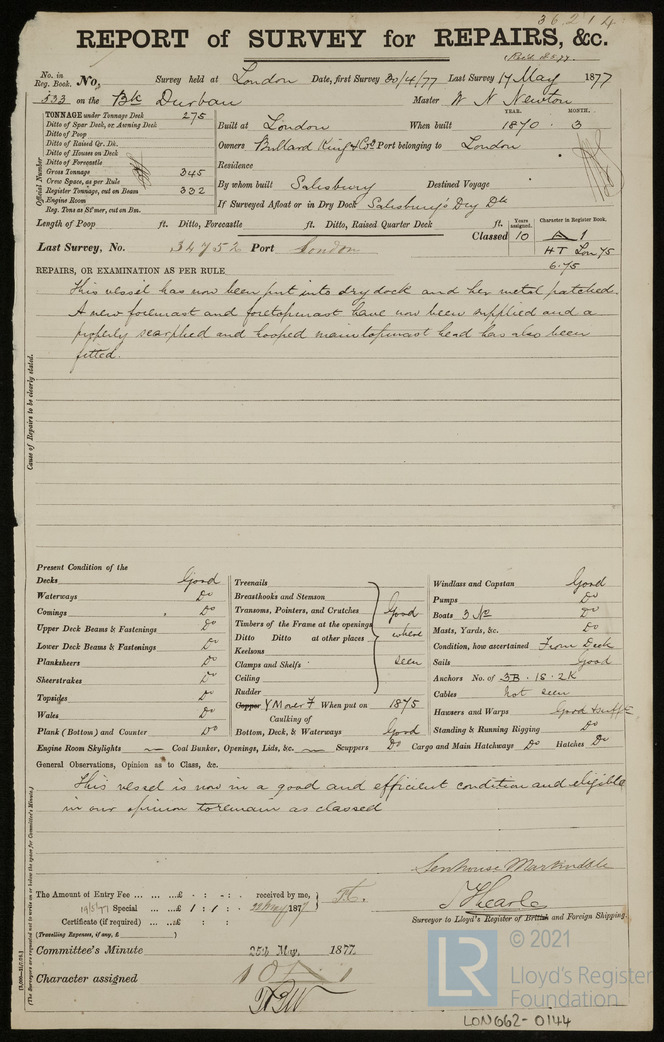 36214
REPORT of SURVEY for REPAIRS, &c.
No. in Reg. Book. No, Survey held at London Date, first Survey 30/4/77 Last Survey 17 May 1877
533 on the Bk Durban Master W N Newton
TONNAGE under Tonnage Deck 275
Ditto of Spar Deck, or Awning Deck
Ditto of Poop
Ditto of Raised Qr. Dk.
Ditto of Houses on Deck
Ditto of Forecastle
Gross Tonnage 345
Crew Space, as per Rule
Register Tonnage, cut on Beam 332
Engine Room
Reg. Tons as St'mer, cut on Bm.
Official Number
Built at London When built YEAR. 1870 MONTH. 3
Owners Bullard King & Co. Port belonging to London
Residence
By whom built Salisbury Destined Voyage
If Surveyed Afloat or in Dry Dock Salisbury's Dry Dk
Length of Poop ft. Ditto, Forecastle ft. Ditto, Raised Quarter Deck ft.
Years assigned. Character in Register Book.
Classed 10 A 1
HT Lon 75
6.75
Last Survey, No. 34752 Port London
REPAIRS, OR EXAMINATION AS PER RULE
This vessel has now been put into dry dock and her metal patched.
A new foremast and foretopmast have now been supplied and a
properly scarphed and hooped maintopmast head has also been
fitted.
Cause of Repairs to be clearly stated.
Present Condition of the
Decks Good
Waterways Do
Comings Do
Upper Deck Beams & Fastenings Do
Lower Deck Beams & Fastenings Do
Planksheers Do
Sheerstrakes Do
Topsides Do
Wales Do
Plank (Bottom) and Counter Do
Treenails
Breasthooks and Stemson
Transoms, Pointers, and Crutches Good
Timbers of the Frame at the openings
Ditto Ditto at other places where
Keelsons
Clamps and Shelfs seen
Ceiling
Rudder
Copper Y Mover F When put on 1875
Caulking of
Bottom, Deck, & Waterways Good
Windlass and Capstan Good
Pumps Do
Boats 3 No Do
Masts, Yards, &c. Do
Condition, how ascertained From Deck
Sails Good
Anchors No. of 3B . 1S . 2K
Cables not seen
Hawsers and Warps Good & sufft
Standing & Running Rigging Do
Engine Room Skylights — Coal Bunker, Openings, Lids, &c. — Scuppers Do Cargo and Main Hatchways Do Hatches Do
General Observations, Opinion as to Class, &c.
This vessel is now in a good and efficient condition and eligible
in our opinion to remain as classed
Senhouse Martindale
The Amount of Entry Fee ... ... ...£ : - : - received by me,
19/5/77 Special ... ...£ 1 : 1 : 1877
Certificate (if required) ... ...£ : :
(Travelling Expenses, if any, £ )
Surveyor to Lloyd's Register of British and Foreign Shipping.
Committee's Minute 25th May. 1877.
Character assigned 10 A 1
LR © 2021
Lloyd's Register
Foundation
LON662-0144